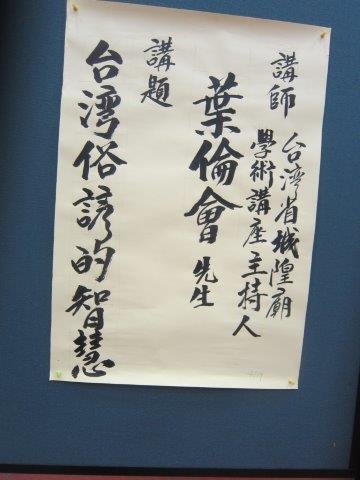 講師
台湾省城隍廟
學術講座主持人
葉倫會先生
講題
台湾俗諺的智慧